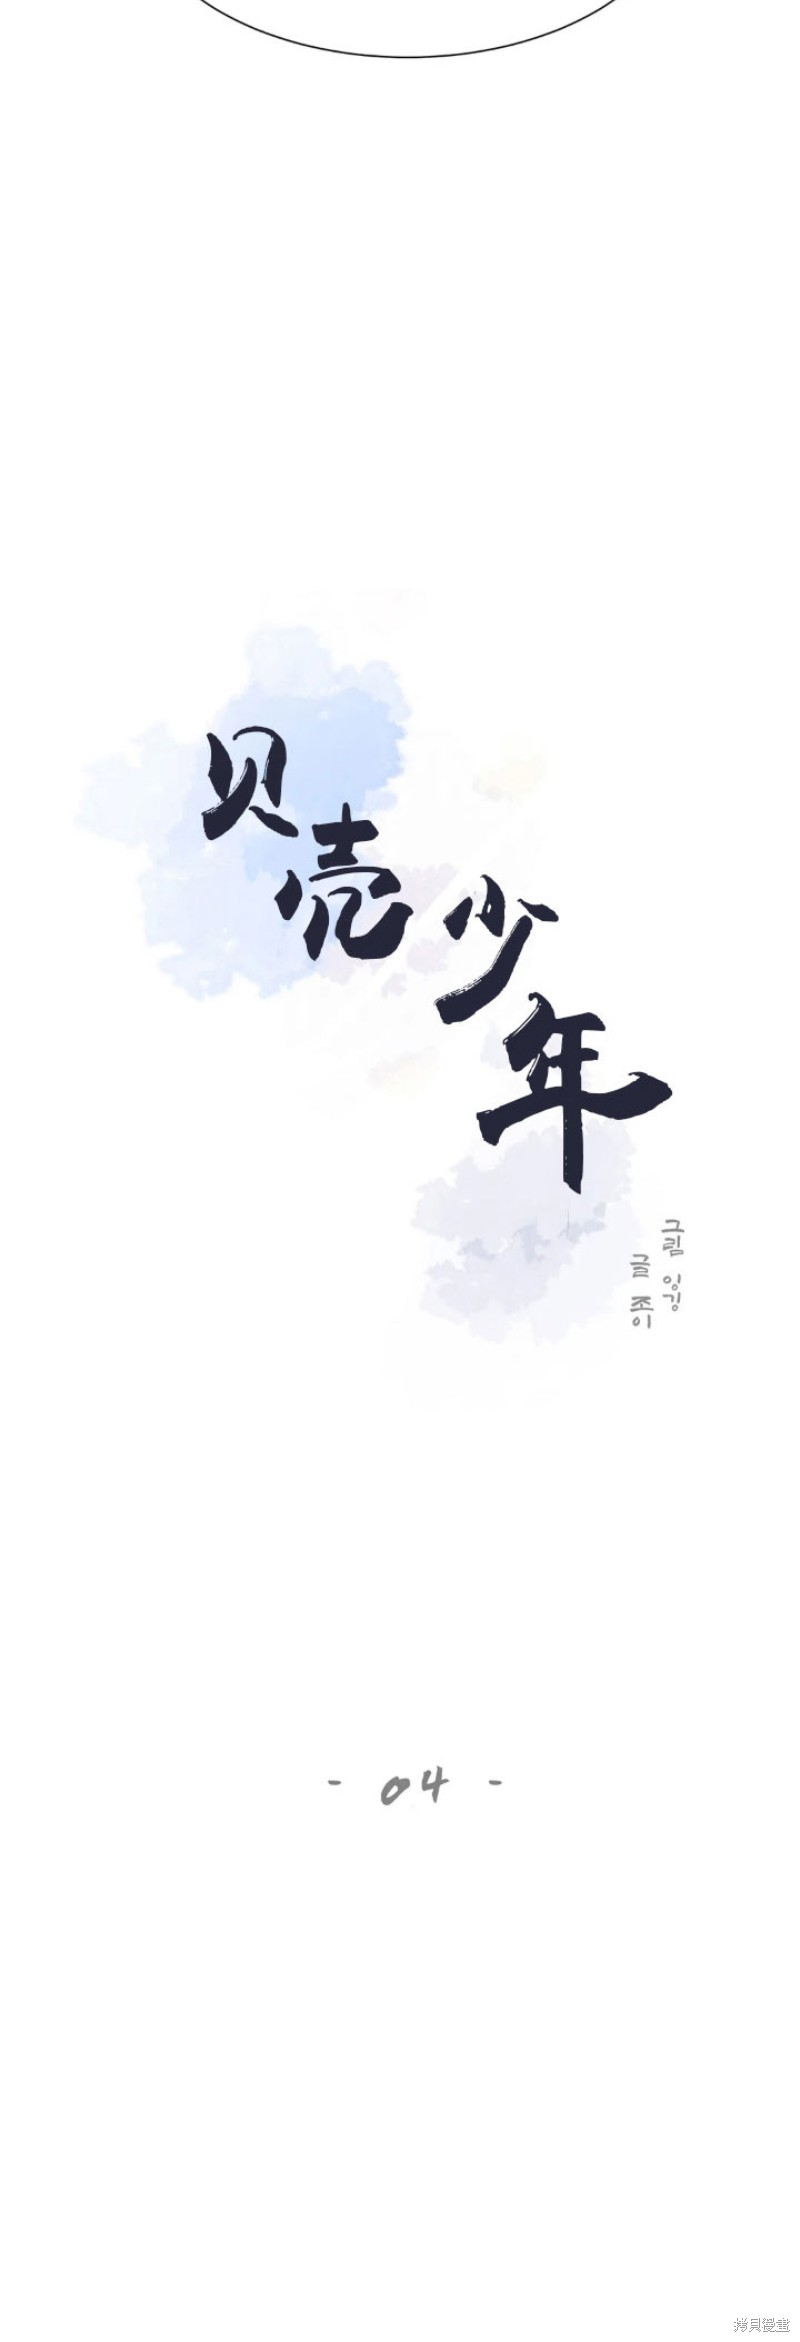 贝壳少年
그림 잉깅
글 조이
- 04 -
拷貝漫畫